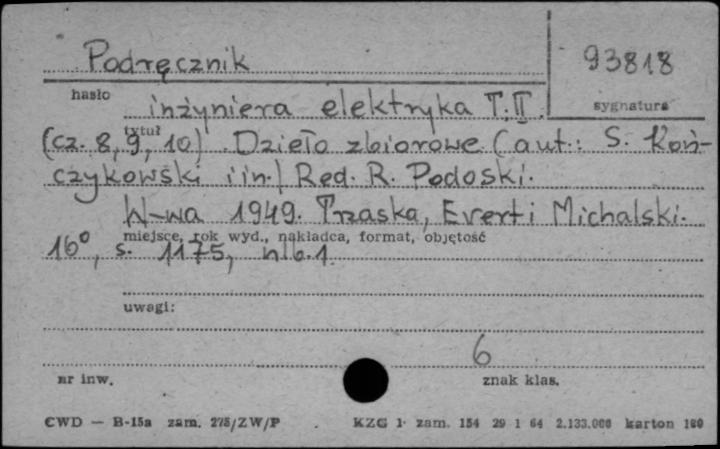 Podręcznik
93818
hasło
sygnatura
inżyniera elektryka T. II.
tytuł
(cz. 8, 9, 10). Dzieło zbiorowe (aut.: S. Koń-
czykowski i in.) Red. R. Podoski.
W-wa 1949. Trzaska, Evert i Michalski.
miejsce, rok wyd., nakładca, format, objętość
16°, s. 1175, nlb. 1
uwagi:
6
nr inw.
znak klas.
CWD — B-15a zam. 275/ZW/P
KZG 1 zam. 154 29 1 64 2.133.000 karton 180